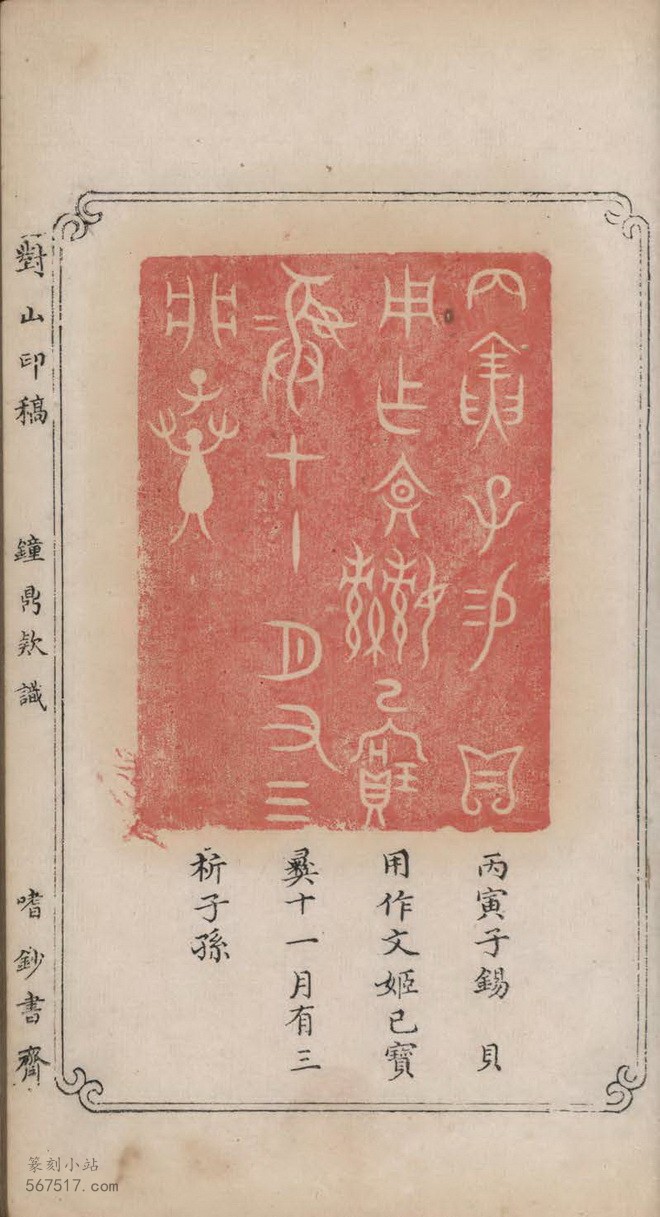 丙寅子錫 貝
用作文姬己寶
彝十一月有三
析子孫
對山印稿 鐘鼎欵識 嗜鈔書齋
篆刻小站
567517.com